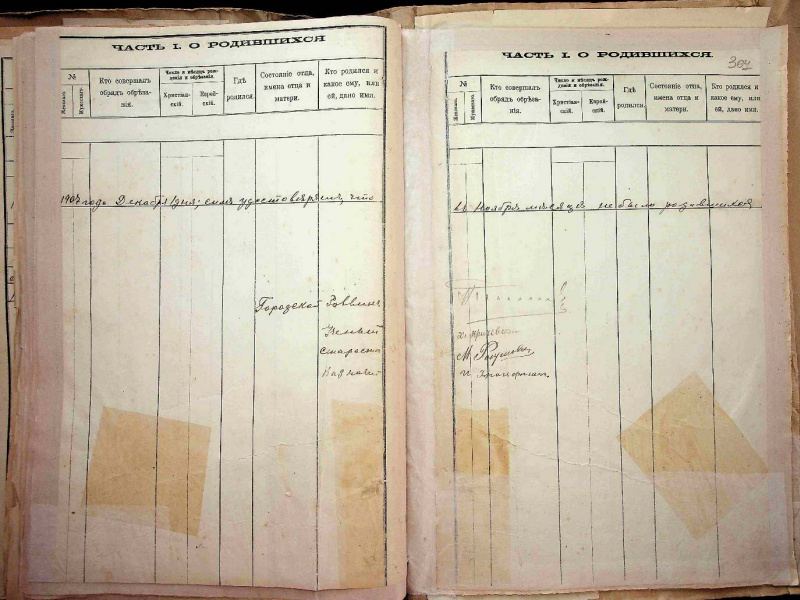 ЧАСТЬ I. О РОДИВШИХСЯ
№
Женскаго.
Мужескаго.
Кто совершалъ обрядъ обрѣза-
нія.
Число и мѣсяцъ рож-
денія и обрѣзанія.
Христіан-
скій.
Еврей-
скій.
Гдѣ
родился.
Состояніе отца,
имена отца и
матери.
Кто родился и
какое ему, или
ей, дано имя.
1907 года Декабря 1 дня; симъ удостовѣряемъ, что
Городской Раввинъ
Ученый
Староста
Казначей
ЧАСТЬ I. О РОДИВШИХСЯ
304
№
Женскаго.
Мужескаго.
Кто совершалъ
обрядъ обрѣза-
нія.
Число и мѣсяцъ рож-
денія и обрѣзанія.
Христіан-
скій.
Еврей-
скій.
Гдѣ
родился.
Состояніе отца,
имена отца и
матери.
Кто родился и
какое ему, или
ей, дано имя.
въ Ноябрѣ мѣсяцѣ не было родившихся
М.
И.